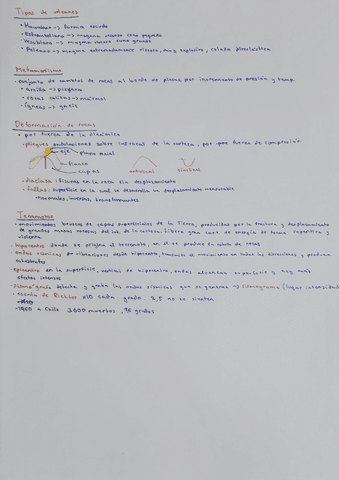 Tipos de volcanes
• Hawaiano -> forma escudo
• Estromboliano -> magma viscoso cono pequeño
• Vesubiano -> magma viscoso cono grande
• Peleano -> magma extremadamente viscoso, muy explosivo, colada piroclástica
Metamorfismo
- conjunto de cambios de rocas al borde de placas por incremento de presión y temp.
• arcilla -> pizarra
• rocas calizas -> mármol
• ígneas -> gneis
Deformación de rocas
• por fuerza de la dinámica
• pliegues ondulaciones sobre las rocas de la corteza, por fuerza de compresión
eje plano axial
flanco
capas
anticlinal
sinclinal
- diaclasa: fisuras en la roca sin desplazamiento
- fallas: superficie en la cual se desarrolla un desplazamiento mensurable
normales, inversas, transcurrentes
Terremotos
• movimientos bruscos de capas superficiales de la Tierra, producidos por la fractura y desplazamiento
de grandes masas rocosas del int. de la corteza. Libera gran cant. de energía de forma repentina y
violenta
- hipocentro donde se origina el terremoto, en él se produce la rotura de rocas
- ondas sísmicas -> vibraciones desde hipocentro, transmite el movimiento en todas las direcciones y produce
- epicentro en la superficie, vertical de hipocentro, ondas alcanzan superficie y hay más
efectos intensos
- sismógrafo detecta y graba las ondas sísmicas que se generan -> sismograma (lugar intensidad
- escala de Richter x10 cada grado. 3,5 no se sienten
- 1960 a Chile 3000 muertos, 9,5 grados